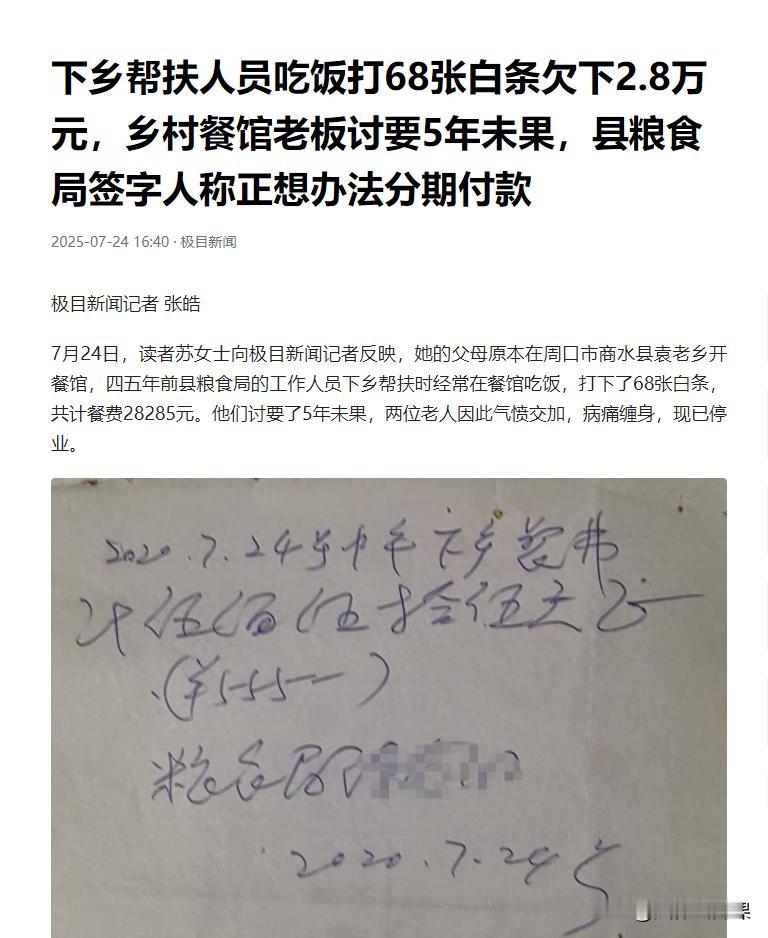 下乡帮扶人员吃饭打68张白条欠下2.8万
元，乡村餐馆老板讨要5年未果，县粮食
局签字人称正想办法分期付款
2025-07-24 16:40 · 极目新闻
极目新闻记者 张皓
7月24日，读者苏女士向极目新闻记者反映，她的父母原本在周口市商水县袁老乡开
餐馆，四五年前县粮食局的工作人员下乡帮扶时经常在餐馆吃饭，打下了68张白条，
共计餐费28285元。他们讨要了5年未果，两位老人因此气愤交加，病痛缠身，现已停
业。
2020.7.24号中午下乡餐费
计伍佰伍拾伍元
(¥555—)
粮食局
2020.7.24号